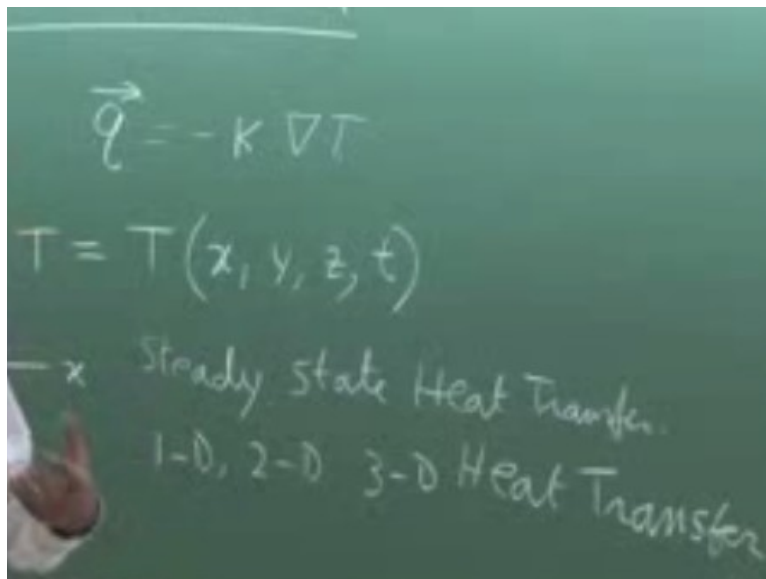 \vec{q} = -K ∇T
T = T(x, y, z, t)
x Steady State Heat Transfer.
1-D, 2-D 3-D Heat Transfer